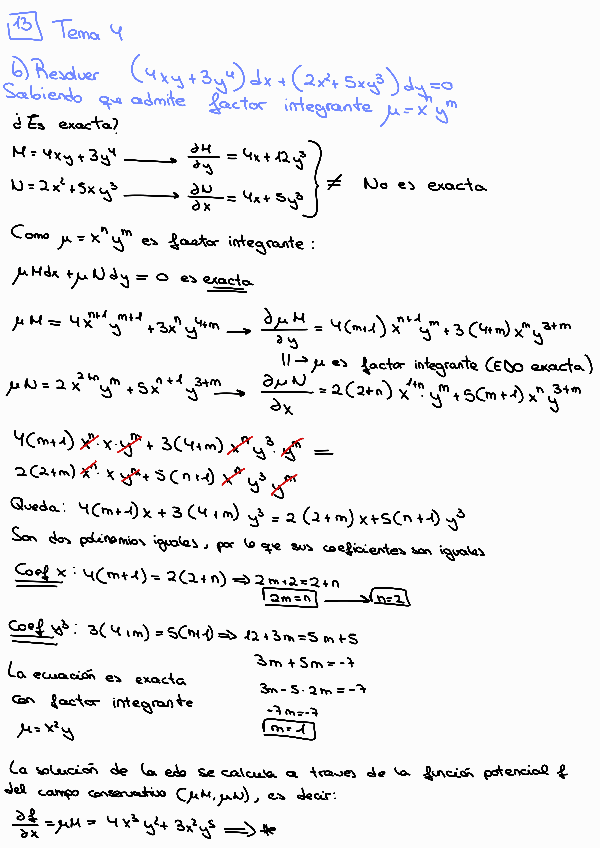 13 Tema 4
b) Resolver (4xy + 3y⁴) dx + (2x² + 5xy³) dy = 0
Sabiendo que admite factor integrante μ = xⁿyᵐ
¿Es exacta?
M = 4xy + 3y⁴ ⟶ ∂M/∂y = 4x + 12y³
≠ No es exacta
N = 2x² + 5xy³ ⟶ ∂N/∂x = 4x + 5y³
Como μ = xⁿyᵐ es factor integrante:
μMdx + μNdy = 0 es exacta
μM = 4xⁿ⁺¹yᵐ⁺¹ + 3xⁿy⁴⁺ᵐ ⟶ ∂μM/∂y = 4(m+1) xⁿ⁺¹yᵐ + 3(4+m) xⁿy³⁺ᵐ
|| → μ es factor integrante (EDO exacta)
μN = 2x²⁺ⁿyᵐ + 5xⁿ⁺¹y³⁺ᵐ ⟶ ∂μN/∂x = 2(2+n) x¹⁺ⁿ·yᵐ + 5(m+1) xⁿy³⁺ᵐ
4(m+1) xⁿ·x·yᵐ + 3(4+m) xⁿy³·yᵐ =
2(2+m) xⁿ·x yᵐ + 5(n+1) xⁿ y³ yᵐ
Queda: 4(m+1)x + 3(4+m) y³ = 2(2+m)x + 5(n+1) y³
Son dos polinomios iguales, por lo que sus coeficientes son iguales
Coef x: 4(m+1) = 2(2+n) ⟹ 2m+2 = 2+n
2m = n ⟶ n = 2
Coef y³: 3(4+m) = 5(n+1) ⟹ 12+3m = 5m+5
3m + 5m = -7
La ecuación es exacta
3m - 5·2m = -7
con factor integrante
-7m = -7
μ = x²y
m = 1
La solución de la edo se calcula a traves de la función potencial f
del campo conservativo (μM, μN), es decir:
∂f/∂x = μM = 4x³y² + 3x²y⁵ ⟹ *